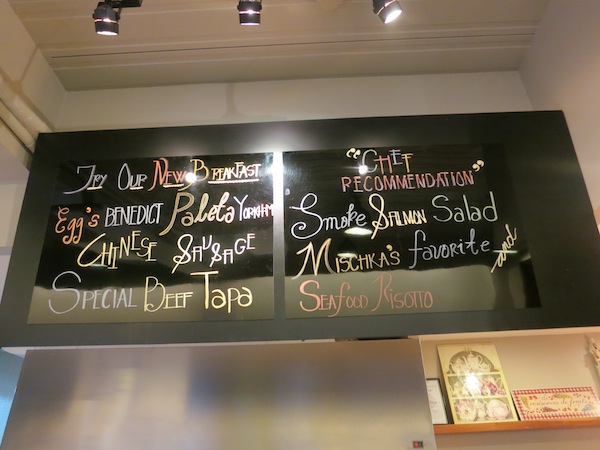 Try Our New Breakfast
Egg's BENEDICT Paleta York Ham
CHINESE SAUSAGE
SPECIAL BEEF TAPA
"CHEF
RECOMMENDATION"
Smoke SALMON Salad
MISCHKA'S favorite and
SEAFOOD RISOTTO